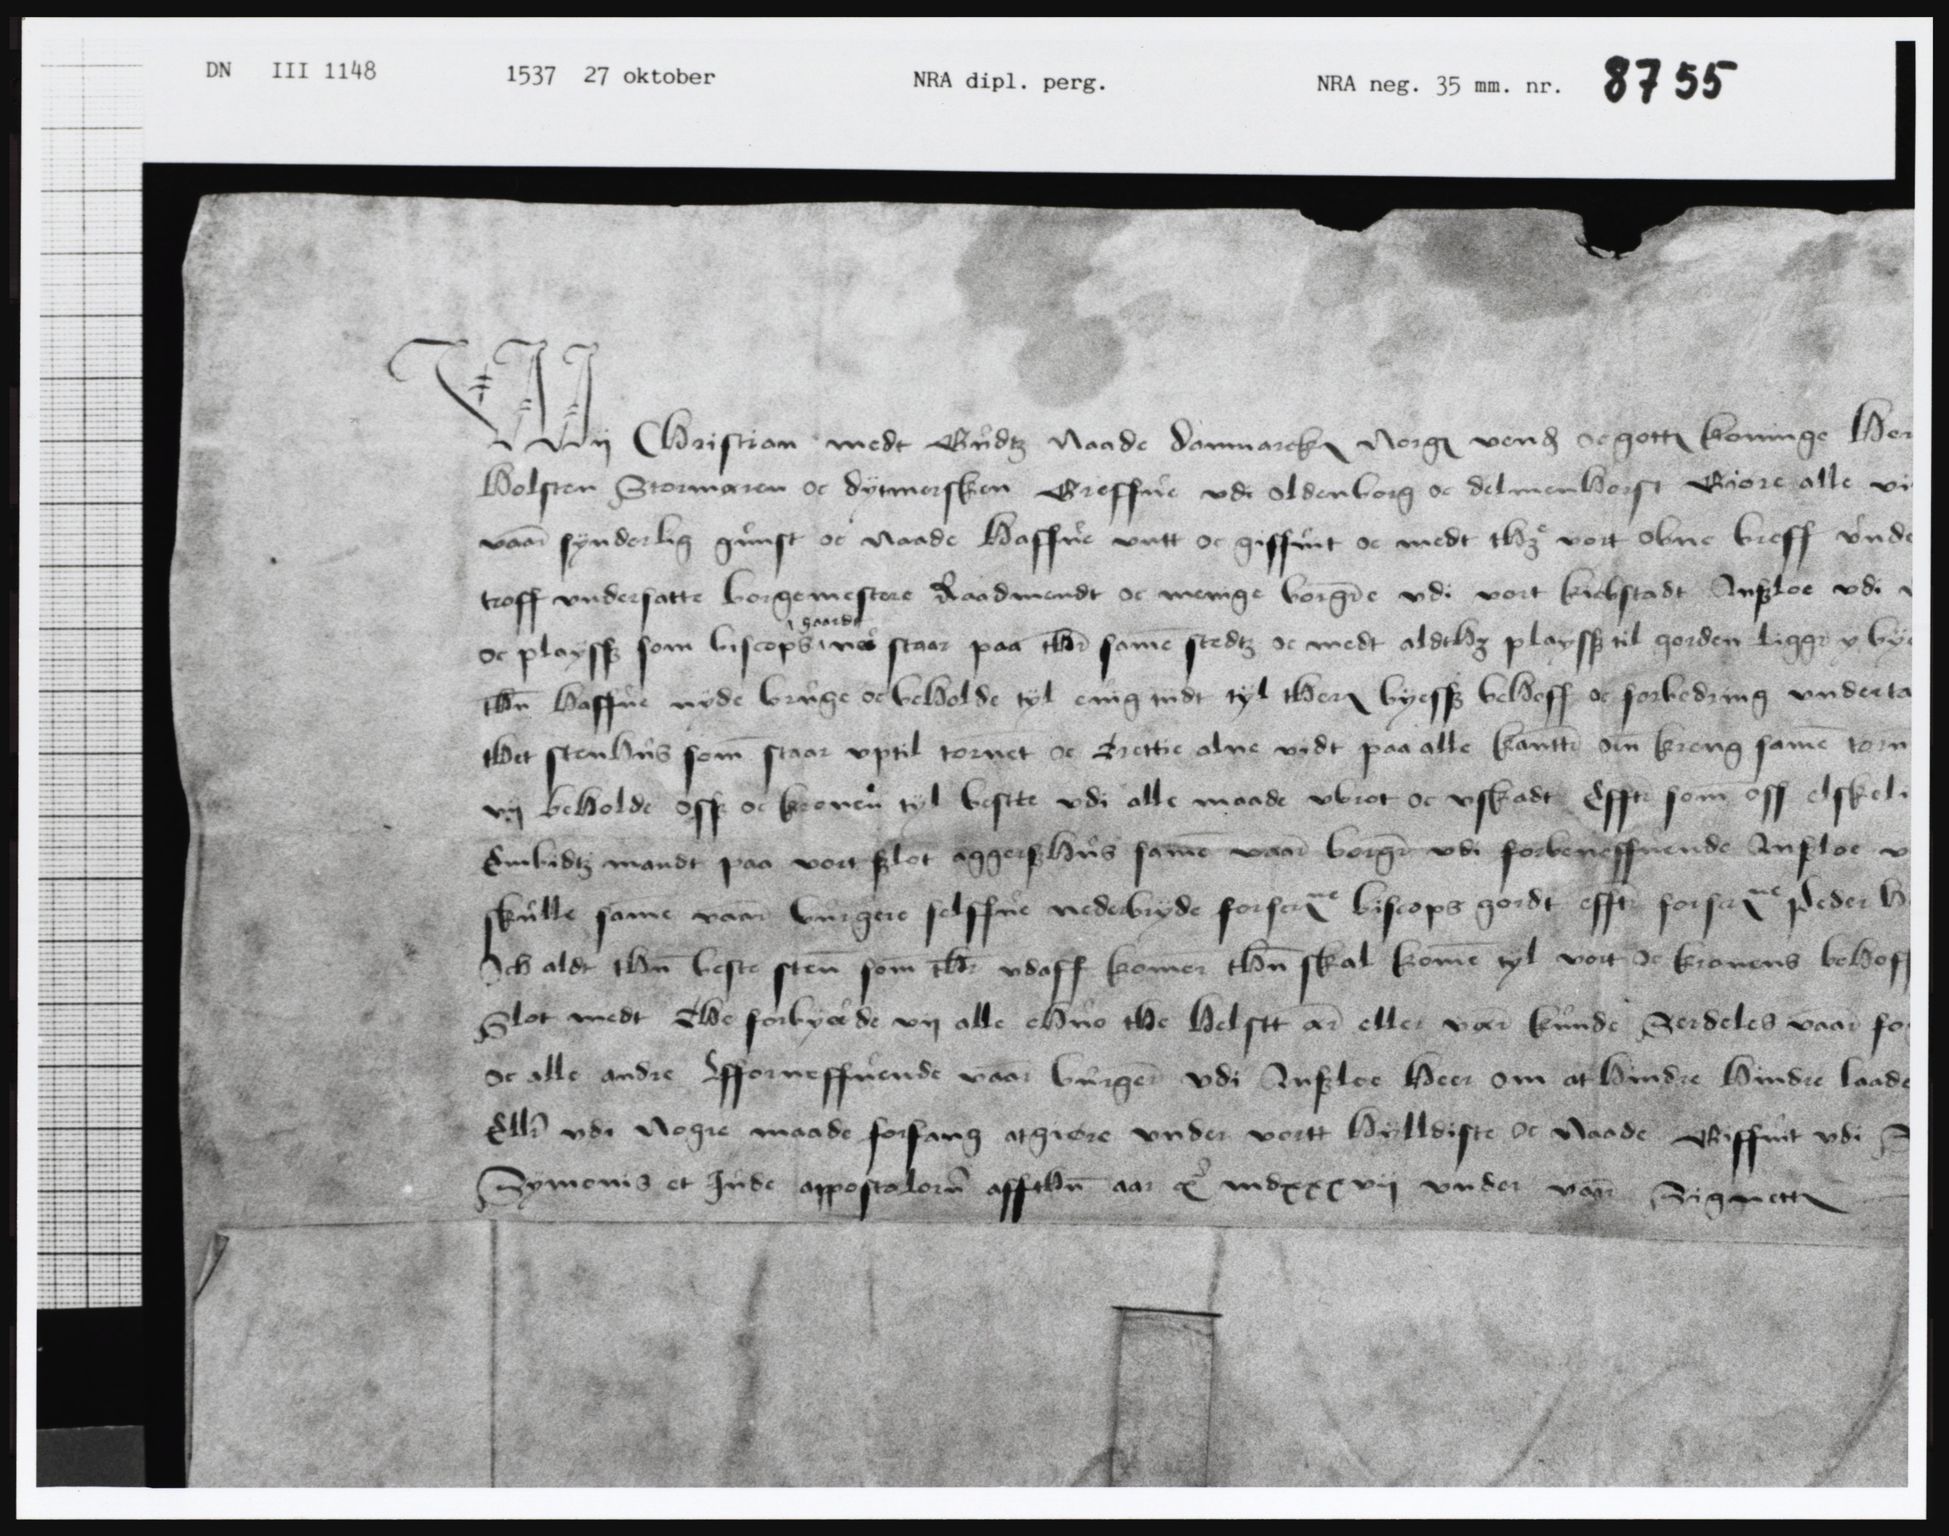 DN III 1148 1537 27 oktober NRA dipl. perg. NRA neg. 35 mm. nr. 8755
Wij Christian medt Gudtz Naade Danmarcks Norgs vends oc gotts koninge Her
Holsten Stormaren oc dÿtmersken Greffue vdi oldenborg oc delmenhorst Giøre alle vi
vaar sÿnderlig gunst oc Naade Haffue vntt oc giffuit oc medt thz vort obne breff vnde
troff vndersatte borgemestere Raadmendt oc menige borgere vdi vort kiøbstadt Anszloe vdi
gaardt
oc playssz som biscops nv staar paa ther samme stedtz oc medt aldthz playssz til gorden ligger y bye
then Haffue nÿde bruge oc beholde tÿl euig tidt tÿl thers byessz behoff oc forbedring vnderta
thet stenhus som staar vptil tornet oc trettie alne vidt paa alle kantter om kreng samme torn
vij beholde osz oc kronen tÿl beste vdi alle maade vbrot oc vskadt Effter som oss elskeli
Embidtz mandt paa vort szlot aggerszhus samme vaar borger vdi forbeneffnende Anszloe
skulle same vaar burgere selffue nederbryde forscrne biscops gordt effter forscrne Peder H
Och aldt then beste sten som ther vdaff komer then skal komme tÿl vort oc kronens behoff
Slot medt The forbyude vij alle ehuo the helstt ær eller vær kunde Serdeles vaar fo
oc alle andre fforneffnende vaar burger vdi Anszloe Heer om at hindre hindre laade
Eller vdi Nogre maade forfang at giøre vnder vortt Hÿlldiste oc Naade Giffuit vdi
Symonis et Jude appostolorum affthen aar mdxxxvij vnder vaar Signett